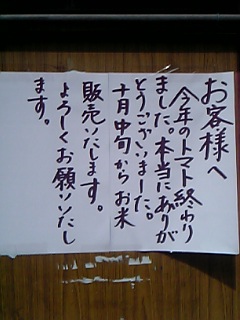 お客様へ
今年のトマト終わり
ました。本当にありが
とうございました。
十月中旬からお米
販売いたします。
よろしくお願いいたし
ます。